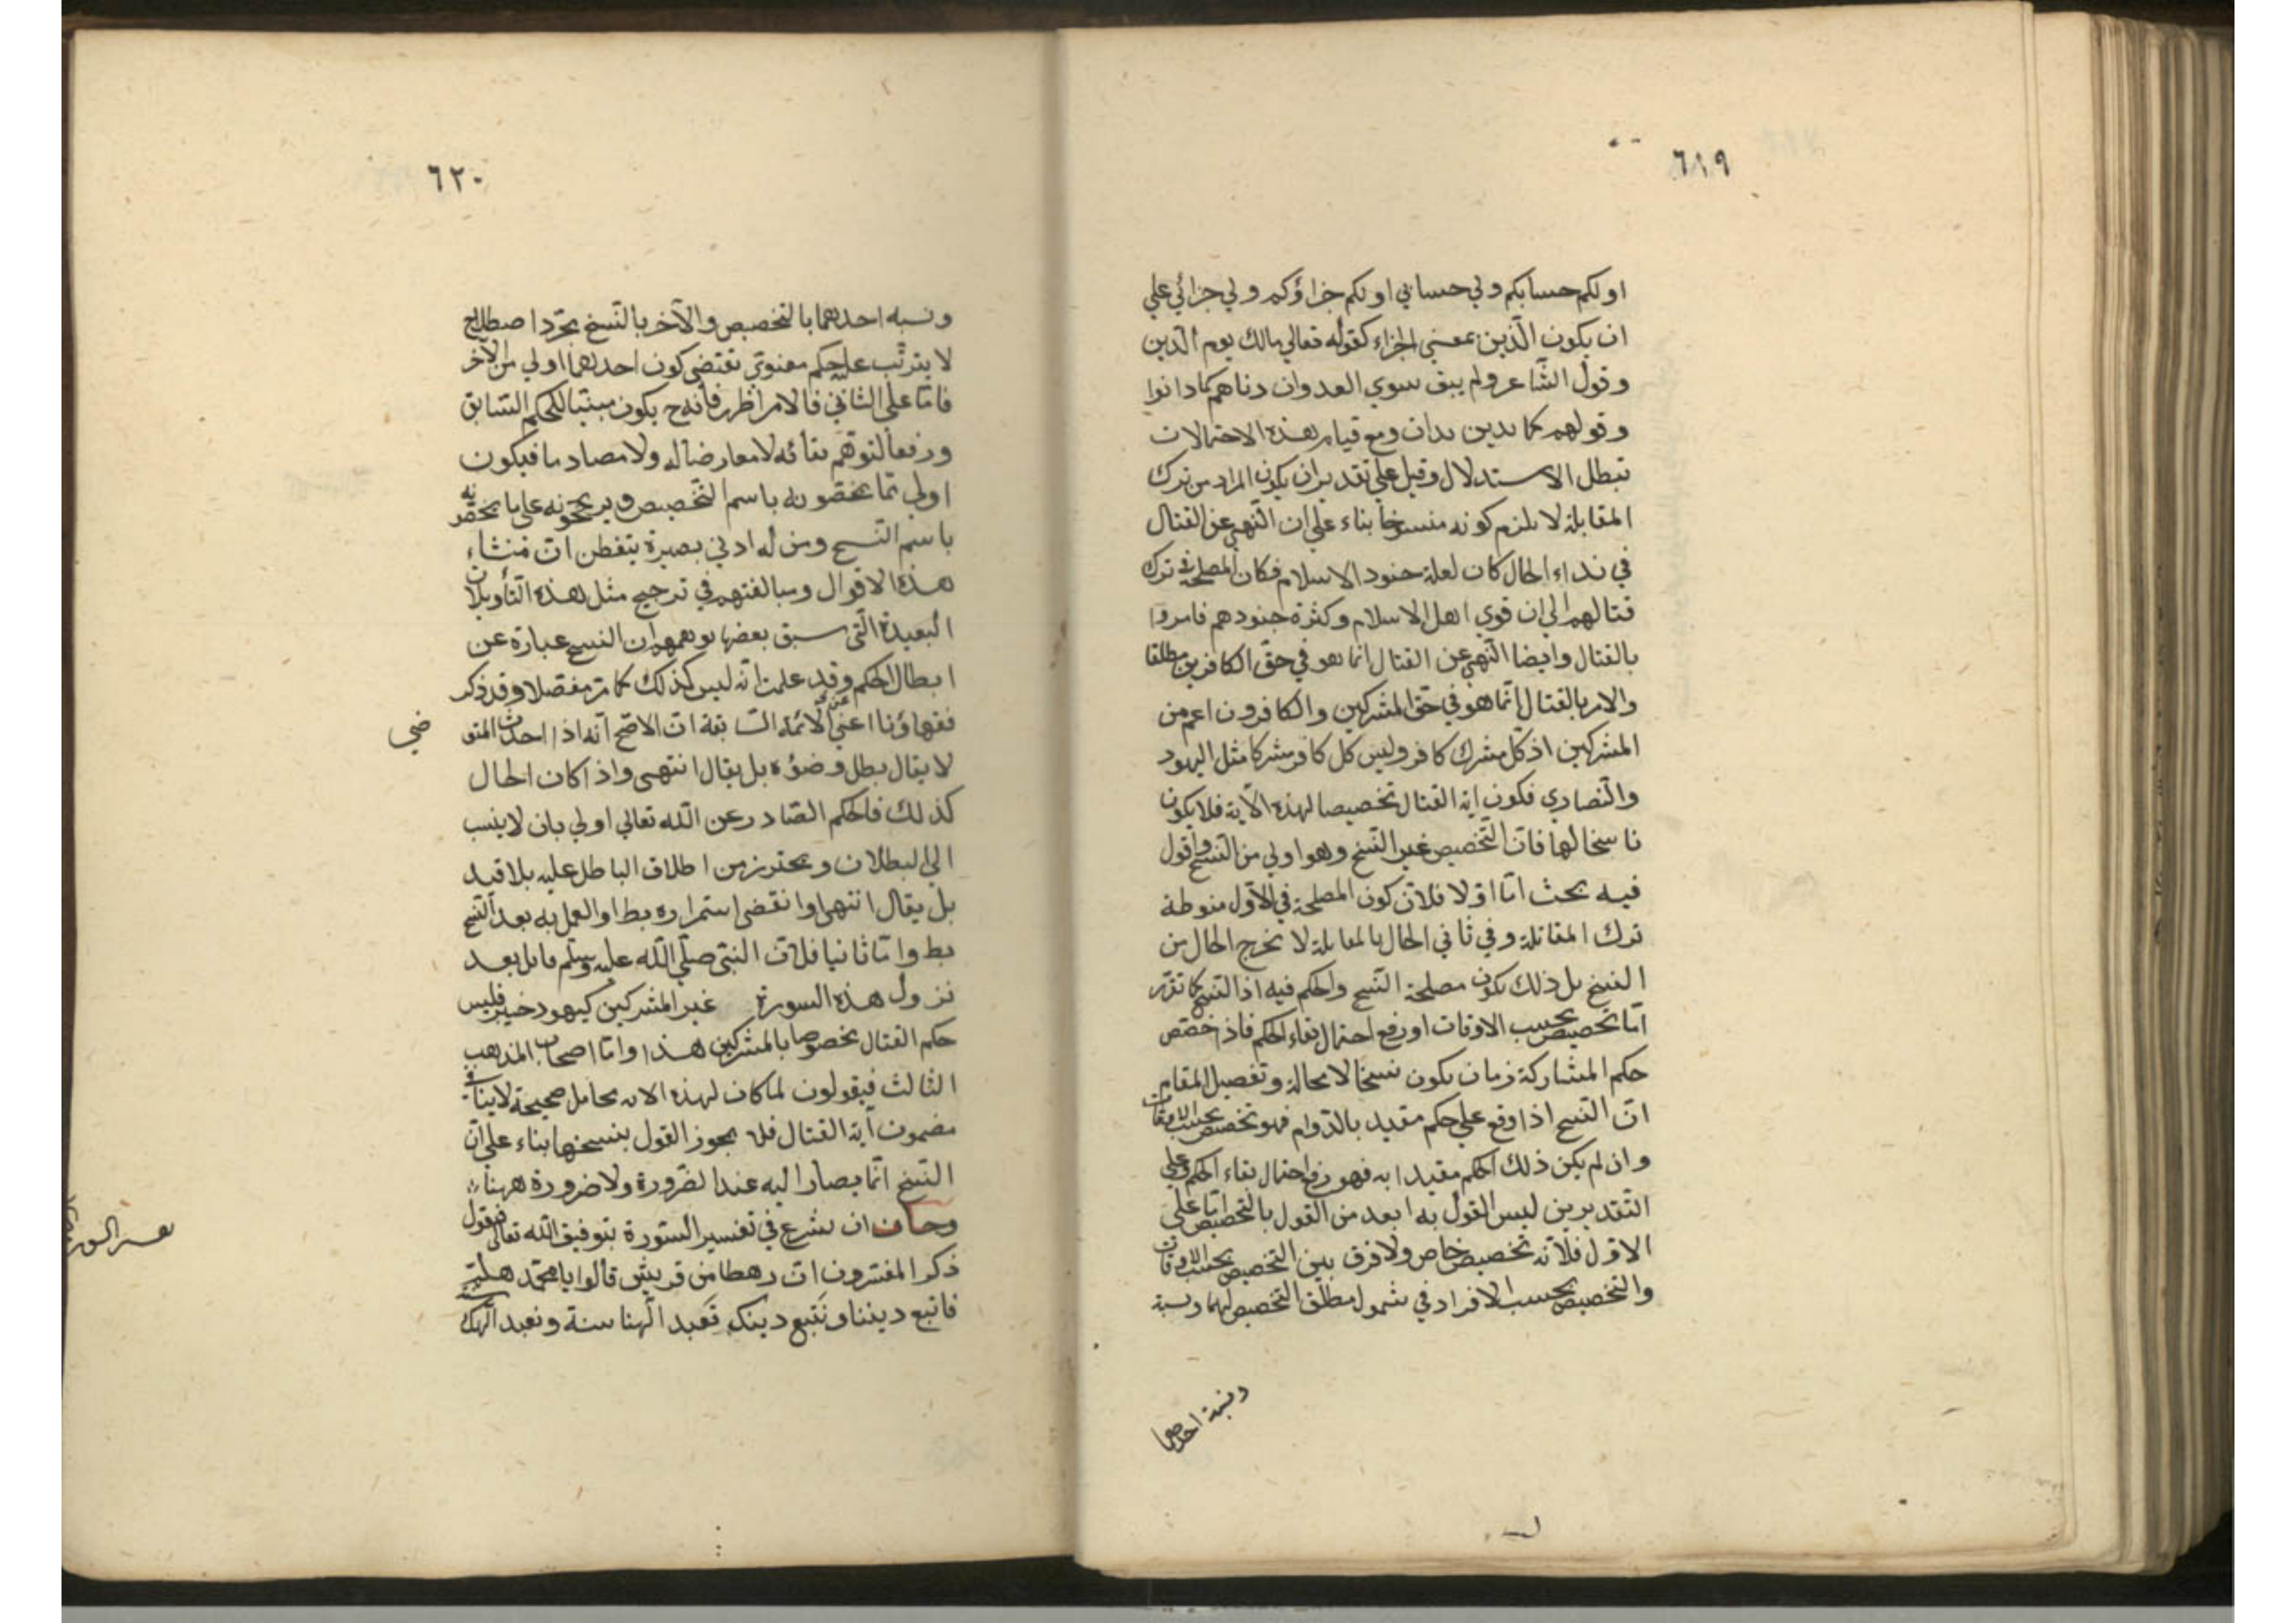 ٦١٩
او لكم حسابكم ولي حسابي او لكم جزاؤكم ولي جزائي علي
ان يكون الدين بمعني الجزاء كقوله تعالي مالك يوم الدين
وقول الشاعر ولم يبق سوي العدوان دناهم كما دانوا
وقولهم كما تدين تدان ومع قيام هذه الاحتمالات
تبطل الاستدلال وقيل علي تقدير ان يكون المراد من ترك
المقابلة لا يلزم كونه منسوخا بناء علي ان النهي عن القتال
في نداء الحال كان لعلة جنود الاسلام فكان المصلحة في ترك
قتالهم الي ان قوي اهل الاسلام وكثرة جنودهم فامروا
بالقتال وايضا النهي عن القتال انما هو في حق الكافرين مطلقا
والامر بالقتال انما هو في حق المشركين والكافرون اعم من
المشركين اذ كل مشرك كافر وليس كل كافر مشركا مثل اليهود
والنصاري فكون اية القتال تخصيصا لهذه الآية فلا يكون
ناسخا لها فان التخصيص غير النسخ وهو اولي من النسخ واقول
فيه بحث اما اولا فلان كون المصلحة في الاول منوطة
ترك المقاتلة وفي ثاني الحال بالمقابلة لا يخرج الحال من
النسخ بل ذلك يكون مصلحة النسخ والحكم فيه اذ النسخ كما تقرر
اما تخصيص بحسب الاوقات او رفع احتمال بقاء الحكم فاذ اختص
حكم المشاركة زمان يكون نسخا لا محالة وتفصيل المقام
ان النسخ اذا وقع علي حكم مقيد بالدوام فهو تخصيص بحسب الاوقات
وان لم يكن ذلك الحكم مقيدا به فهو رفع احتمال بقاء الحكم وعلي
التقديرين ليس القول به ابعد من القول بالتخصيص اما علي
الاول فلانه تخصيص خاص ولا فرق بين التخصيص بحسب الاوقات
والتخصيص بحسب الافراد في شمول مطلق التخصيص لهما ونسبة
ونسبة احدهما
٦٢٠
ونسبه احدهما بالتخصيص والآخر بالنسخ بمجرد اصطلاح
لا يترتب عليه حكم معنوي تقتضي كون احدهما اولي من الآخر
فاما علي الثاني فالامر اظهر فانه ح يكون مبينا للحكم السابق
ورفعا لتوهم بقائه لا معارضا له ولا مصادما فيكون
اولي مما يخصونه باسم التخصيص ويرجحونه علي ما يخصونه
باسم النسخ ومن له ادني بصيرة يتفطن ان منشاء
هذه الاقوال ومبالغتهم في ترجيح مثل هذه التأويلات
البعيدة التي سبق بعضها توهمهم ان النسخ عبارة عن
ابطال الحكم وقد علمت انه ليس كذلك كما مر مفصلا وقد ذكر
فقهاؤنا اعني الائمة السابقة ان الاصح انه اذا احدث المتو
ضي
لا يقال بطل وضوءه بل يقال انتهي واذا كان الحال
كذلك فالحكم الصادر عن الله تعالي اولي بان لا ينسب
الي البطلان و يحترز من اطلاق الباطل عليه بلا قيد
بل يقال انتهي او انقضي استمراره بط او العمل به بعد النسخ
بط واما ثانيا فلان النبي صلي الله عليه وسلم قاتل بعد
نزول هذه السورة غير المشركين كيهود خيبر فليس
حكم القتال مخصوصا بالمشركين هذا واما اصحاب المذهب
الثالث فيقولون لما كان لهذه الاية محامل صحيحة لا ينافي
مضمون آية القتال فلا يجوز القول بنسخها بناء علي ان
النسخ انما يصار اليه عند الضرورة ولا ضرورة ههنا
وحان ان نشرع في تفسير السورة بتوفيق الله تعالي فنقول
ذكر المفسرون ان رهطا من قريش قالوا يا محمد هلم
فاتبع ديننا ونتبع دينك تعبد الهنا سنة ونعبد الهك